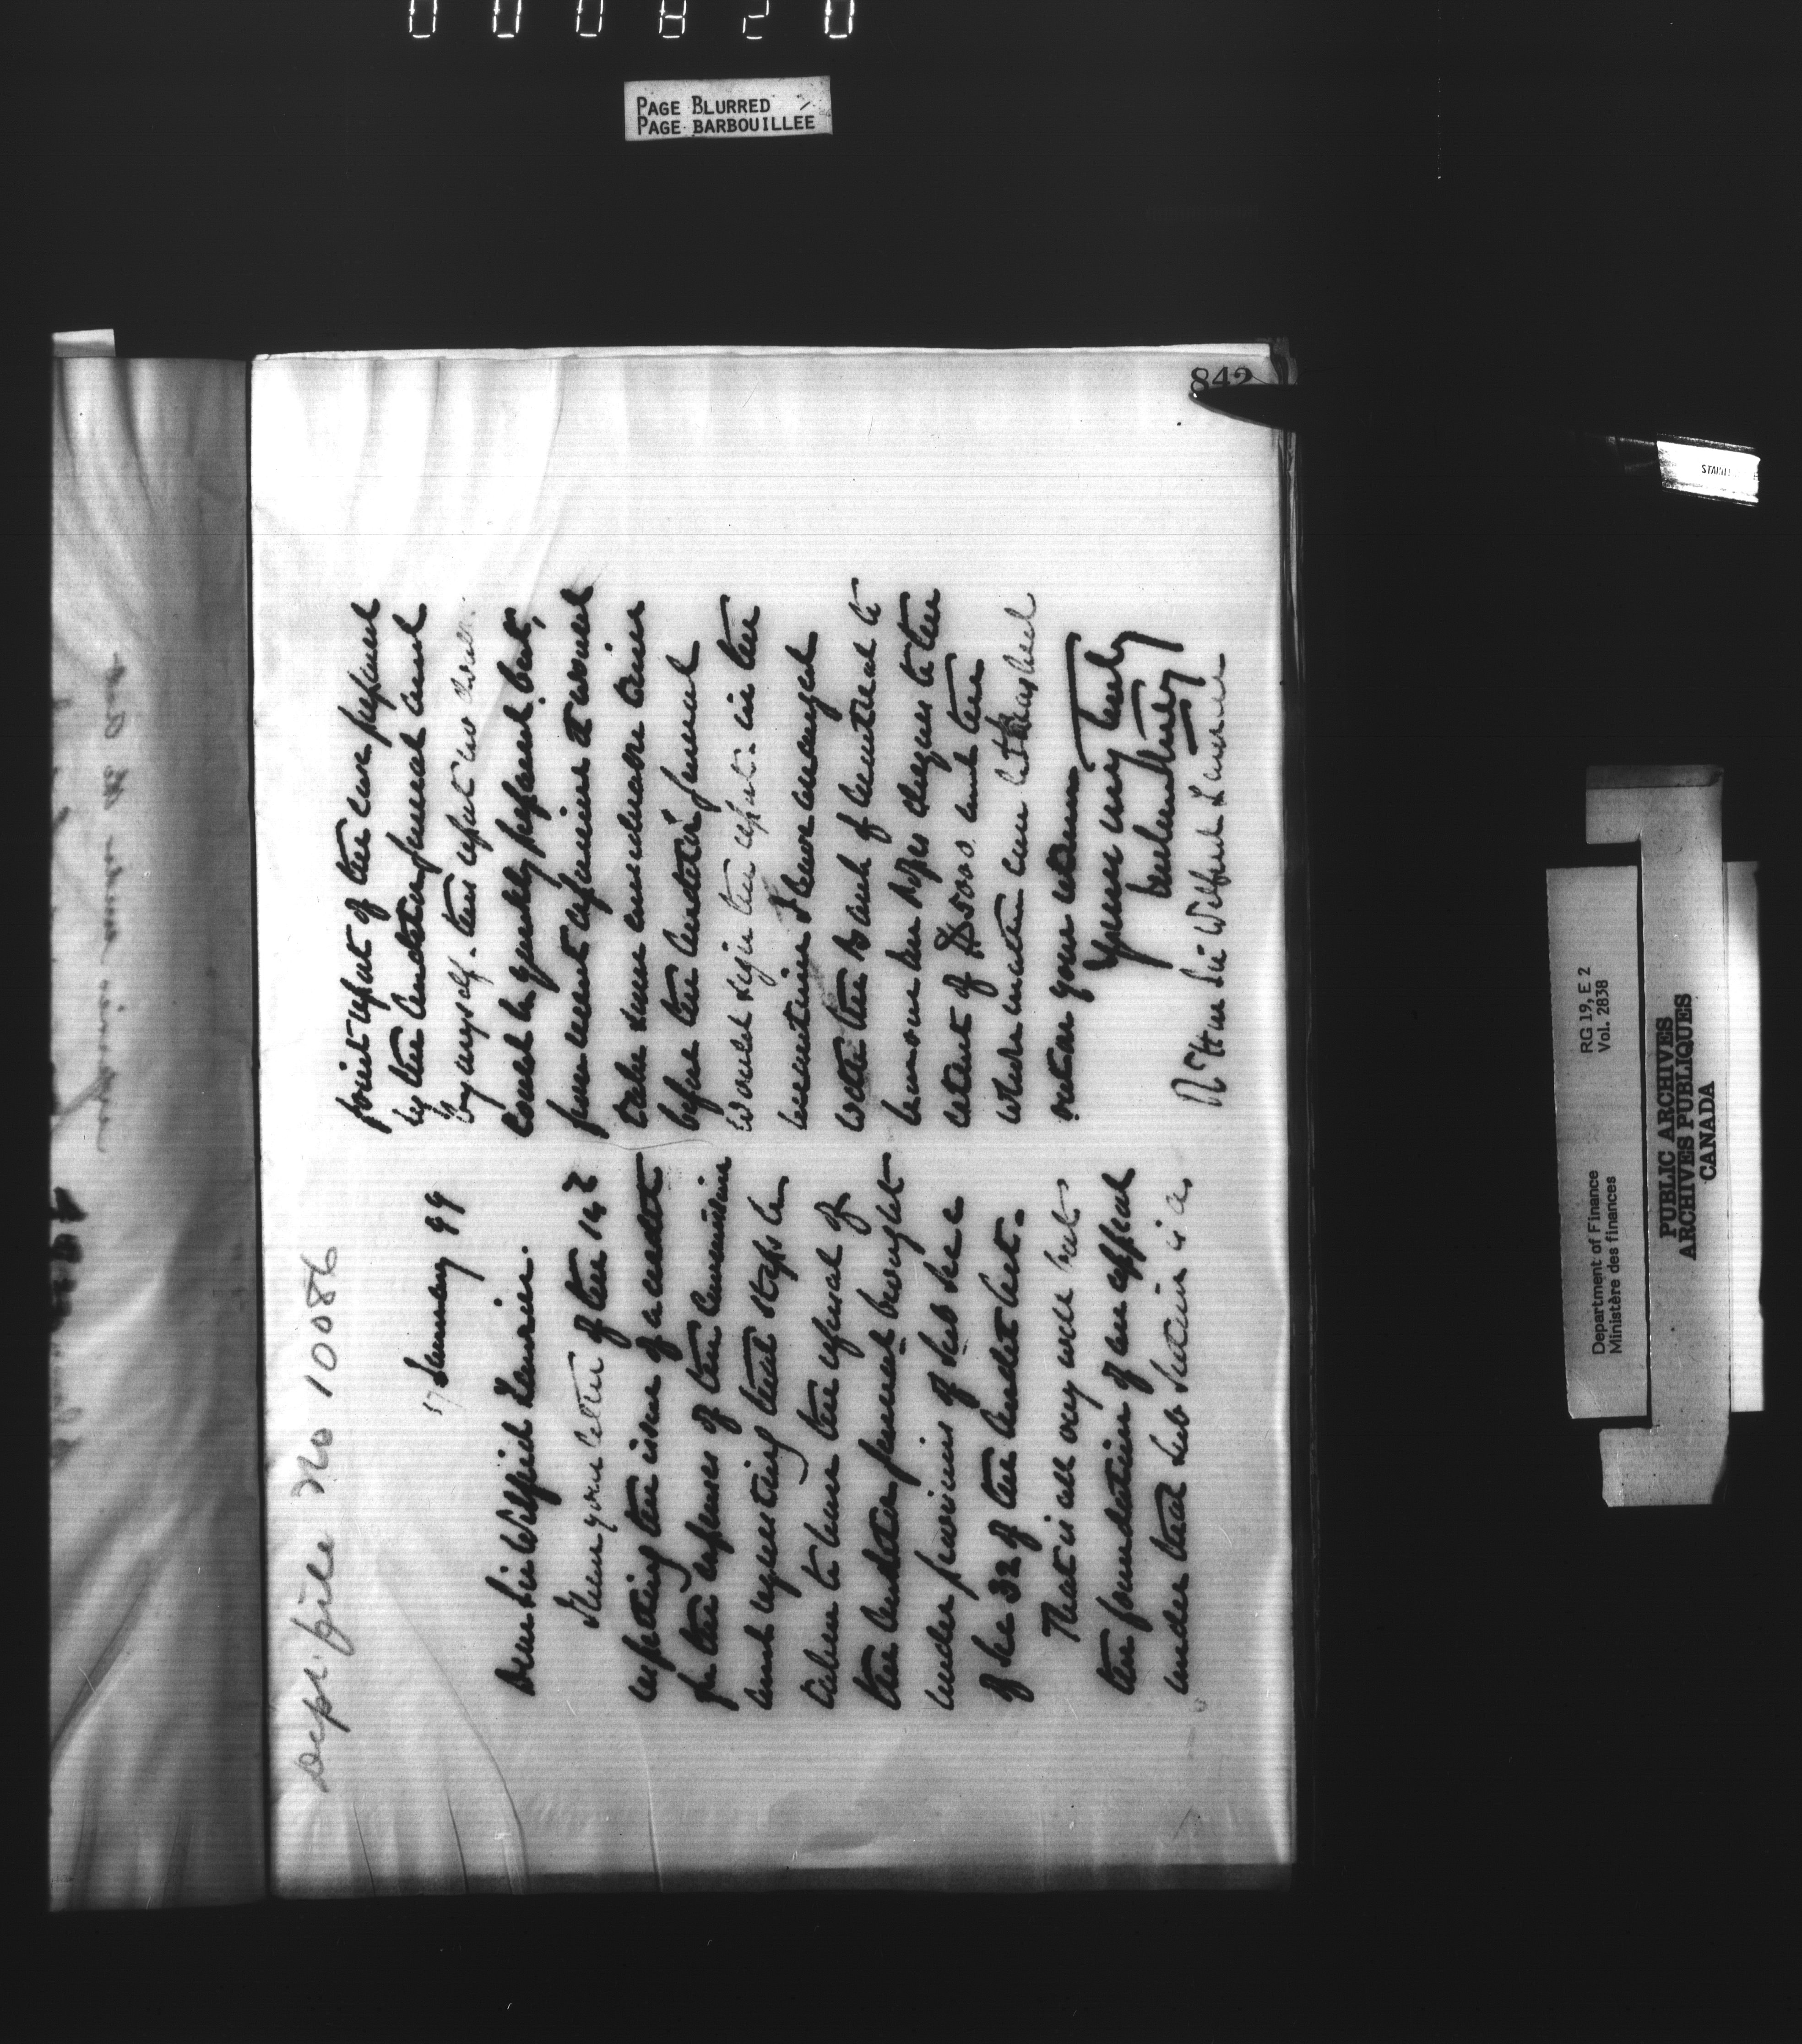 000820
PAGE BLURRED
PAGE BARBOUILLEE
842
Dep. file No 10086
17 January 99
Dear Sir Wilfrid Laurier.
I have your letter of the 14
respecting the issue of a credit
for the expenses of the Commission
and requesting that steps be
taken to have the refusal of
the Auditor General brought
under provisions of Sub Sec
of Sec 32 of the Audit Act.
That is all very well but
the foundation of an appeal
under that Sub Section is a
joint report of the case prepared
by the Auditor General and
by myself. this report no doubt
could be quickly prepared but,
from recent experience it would
take some considerable time
before the Auditor General
would sign the report. in the
meantime I have arranged
with the Bank of Montreal to
honour cheques to the
extent of $5000 and the
whole matter can be
on your return
Yours very truly
Rt Hon Sir Wilfrid Laurier
Department of Finance
Ministère des finances
RG 19, E 2
Vol. 2838
PUBLIC ARCHIVES
ARCHIVES PUBLIQUES
CANADA